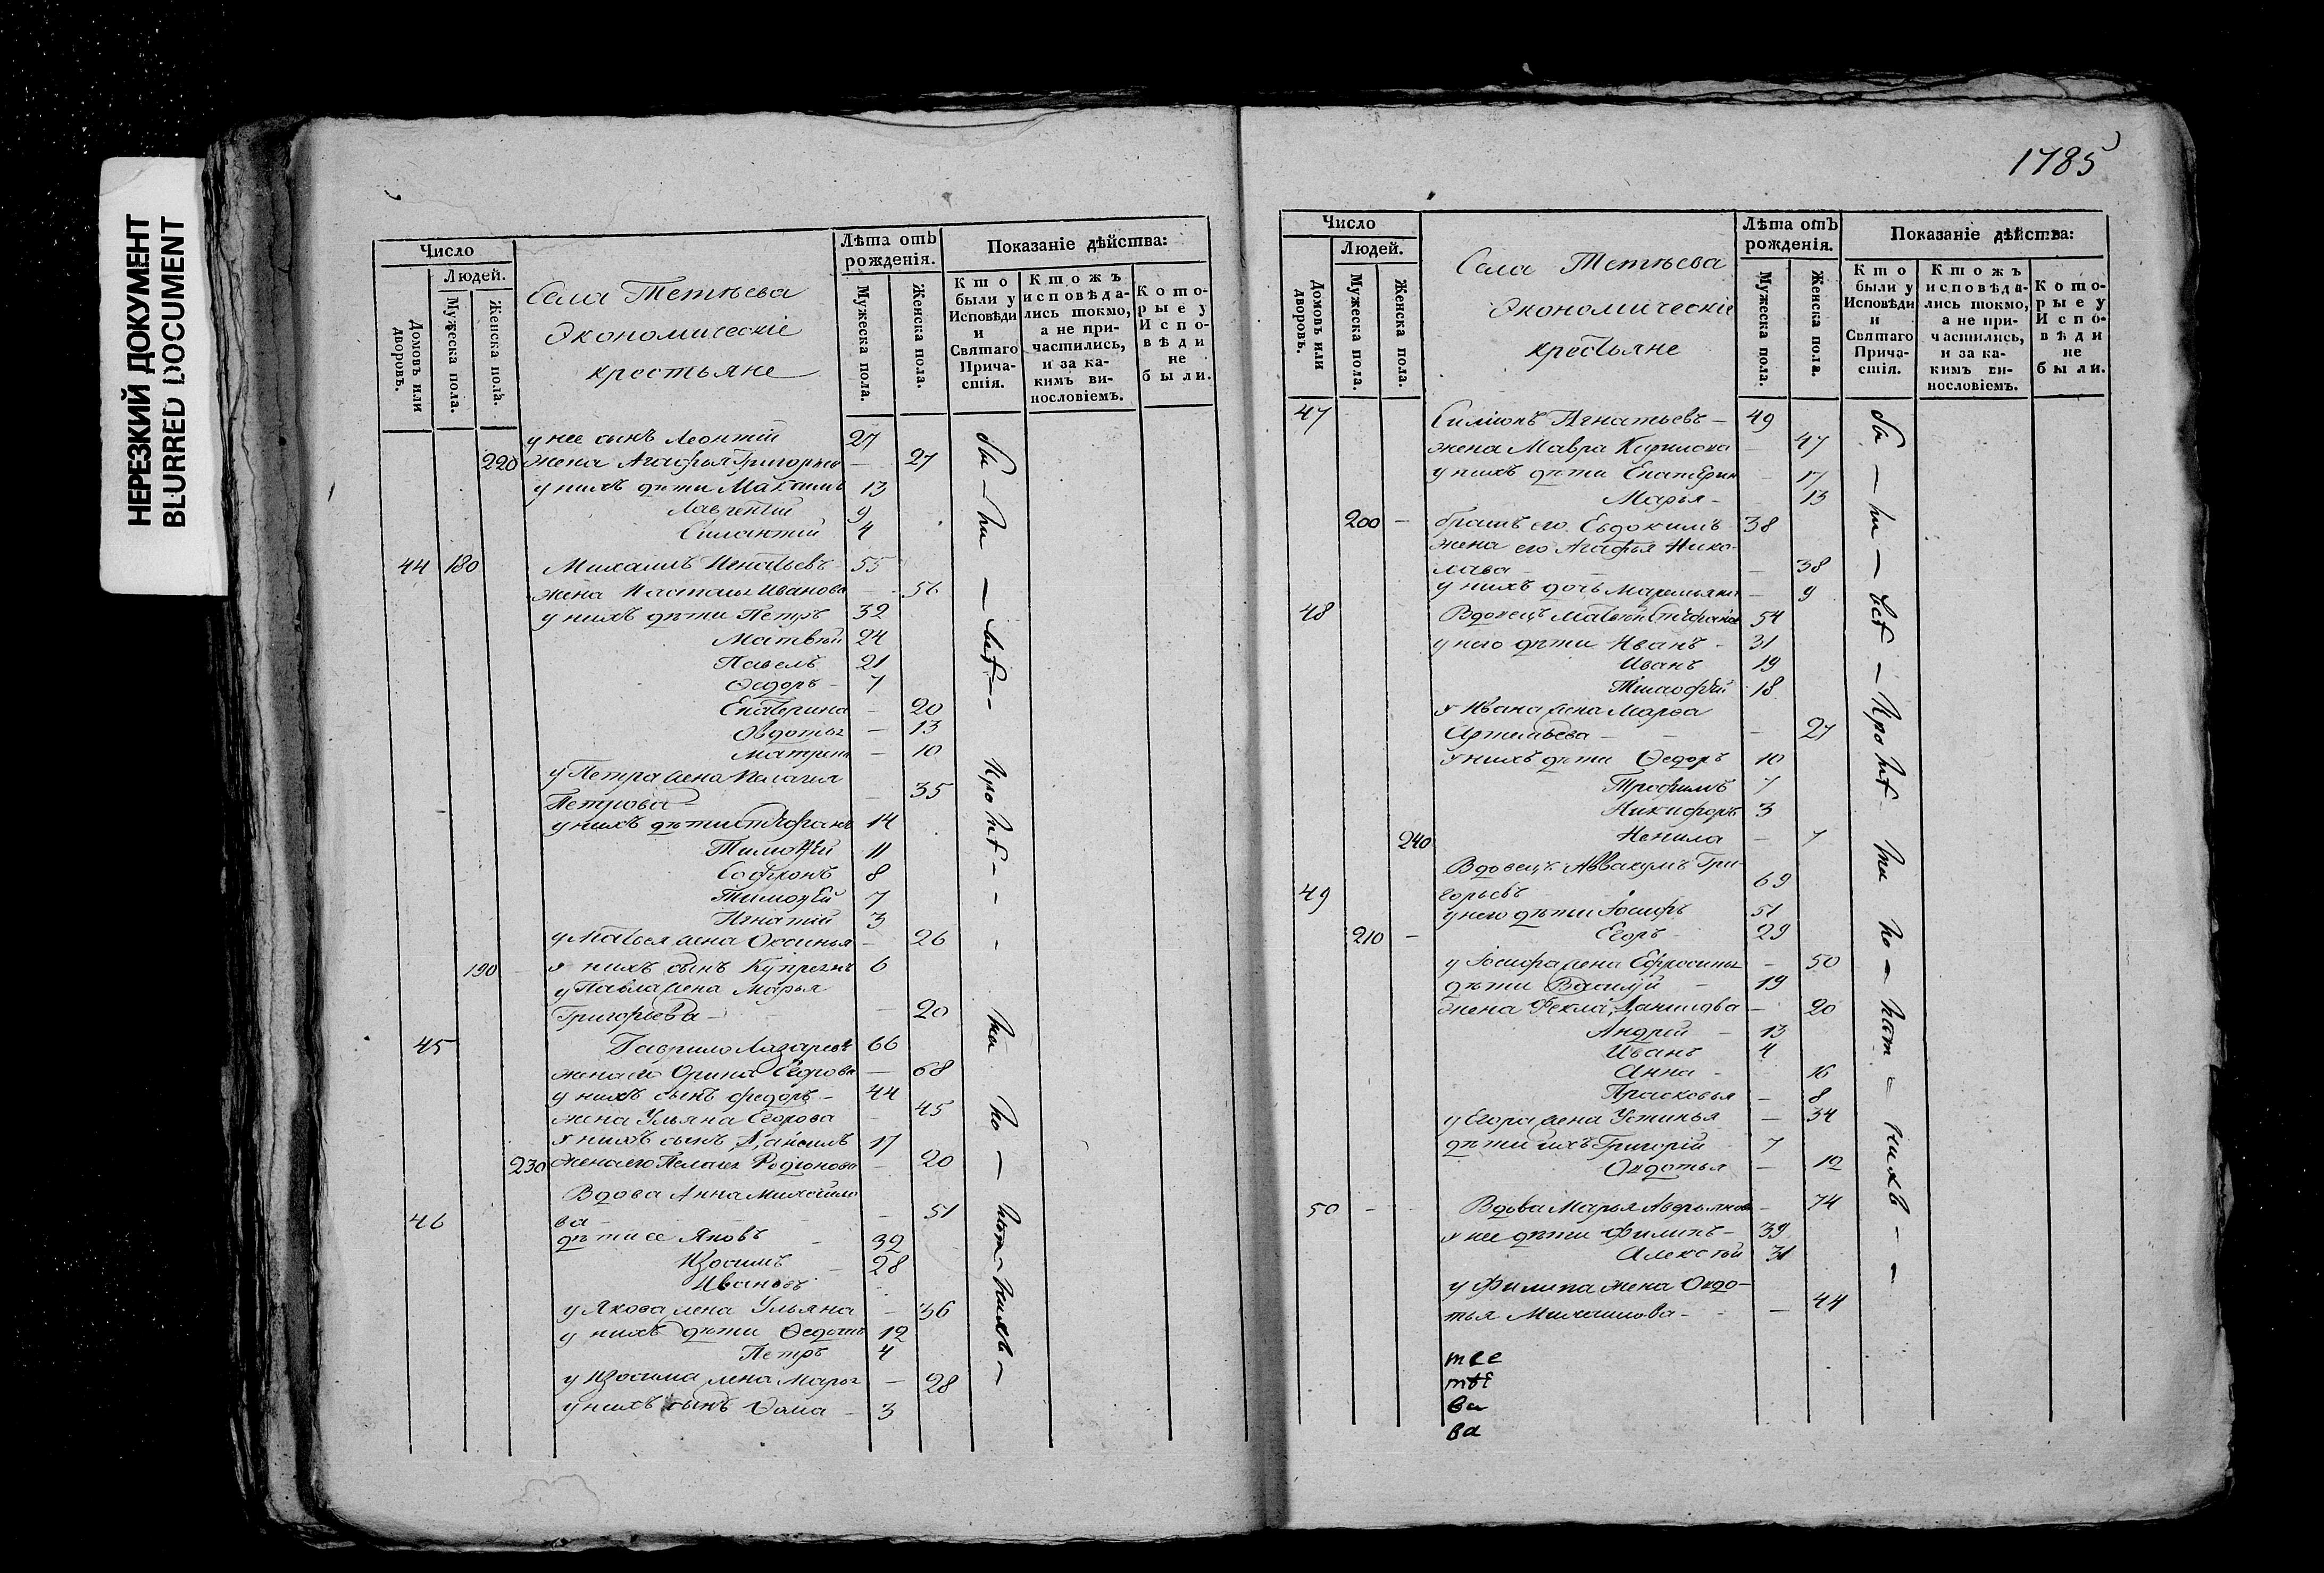 НЕРЕЗКИЙ ДОКУМЕНТ
BLURRED DOCUMENT
Число
Людей.
Домовъ или дворовъ.
Мужеска пола.
Женска пола.
Села Тетѣева
Экономическіе
крестьяне
Лѣта отъ рожденія.
Мужеска пола.
Женска пола.
Показаніе дѣйства:
Кто были у Исповѣди и Святаго Причастія.
Ктожъ исповѣдались токмо, а не причастились, и за какимъ винословіемъ.
Которые у Исповѣди не были.
у нее сынъ Леонтій 27
220 жена Агафья Григорьева — 27
у нихъ дѣти Максимъ 13
Лаврентій 9
Силантій 4
44 180 Михаилъ Игнатьевъ 55
жена Настасья Иванова — 56
у нихъ дѣти Петръ 32
Матвѣй 24
Павелъ 21
Ѳедоръ 7
Екатерина — 20
Овдотья — 13
Матрена — 10
у Петра жена Пелагия
Петрова — 35
у нихъ дѣти Стефанъ 14
Тимофѣй 11
Софронъ 8
Тимофѣй 7
Игнатій 3
у Матвея жена Оксинья — 26
190 у нихъ сынъ Купреянъ 6
у Павла жена Марья
Григорьева — 20
45 Гаврило Лазаревъ 66
жена его Орина Егорова — 68
у нихъ сынъ Федоръ — 44
жена Ульяна Егорова — 45
у нихъ сынъ Данилъ 17
230 жена его Пелагея Родионова — 20
46 Вдова Анна Михайло
ва — 51
дѣти ее Яковъ 32
Изосимъ 28
Ивановъ
у Якова жена Ульяна — 36
у нихъ дѣти 12
Петръ 4
у Изосима жена Марья — 28
у нихъ сынъ Ѳома 3
бы — ли — всѣ — про тѣ — ни по — пот — нихъ —
1785
Число
Людей.
Домовъ или дворовъ.
Мужеска пола.
Женска пола.
Села Тетѣева
Экономическіе
крестьяне
Лѣта отъ рожденія.
Мужеска пола.
Женска пола.
Показаніе дѣйства:
Кто были у Исповѣди и Святаго Причастія.
Ктожъ исповѣдались токмо, а не причастились, и за какимъ винословіемъ.
Которые у Исповѣди не были.
47 Симіонъ Игнатьевъ — 49
жена Мавра Кирилова — 47
у нихъ дѣти Екатерина — 17
Марья — 13
200 — братъ его Евдокимъ 38
жена его Агафья Нико
лаева — 38
у нихъ дочь Маремьяна — 9
48 Вдовецъ Матвѣй Стефановъ 54
у него дѣти Иванъ — 31
Иванъ 19
Тимофѣй 18
у Ивана жена Марѳа
Артемьева — 27
у нихъ дѣти Ѳедоръ 10
Трофимъ 7
Никифоръ 3
240 Ненила — 7
49 Вдовецъ Аввакумъ Гри
горьевъ 69
у него дѣти Іосифъ 51
210 — Егоръ 29
у Іосифа жена Ефросинья — 50
дѣти Василій — 19
жена Фекла Данилова — 20
Андрей — 13
Иванъ 4
Анна — 16
Прасковья — 8
у Егора жена Устинья — 34
дѣти ихъ Григорій 7
Овдотья — 12
50 — Вдова Марья Аверьянова — 74
у нее дѣти Филипъ — 39
Алексѣй 31
у Филипа жена Овдо—
тья Михаилова — 44
бы — ли — всѣ — про тѣ ни по — пот — нихъ —
ва
ва